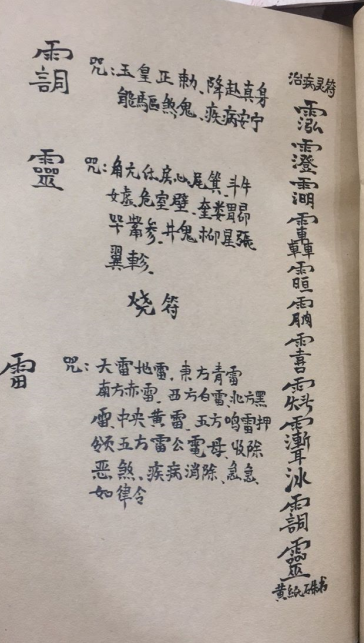 治病灵符
冰
黄纸硃书
咒:玉皇正勅、降赴真身
能驅煞鬼、疾病安宁
靈
咒:角亢氐房心尾箕、斗牛
女虚危室壁、奎娄胃昴
毕觜参、井鬼柳星張
翼軫、
烧符
雷
咒:天雷地雷、東方青雷
南方赤雷、西方白雷、北方黑
雷、中央黄雷、五方鸣雷押
领五方雷公電母、收除
恶煞、疾病消除、急急
如律令